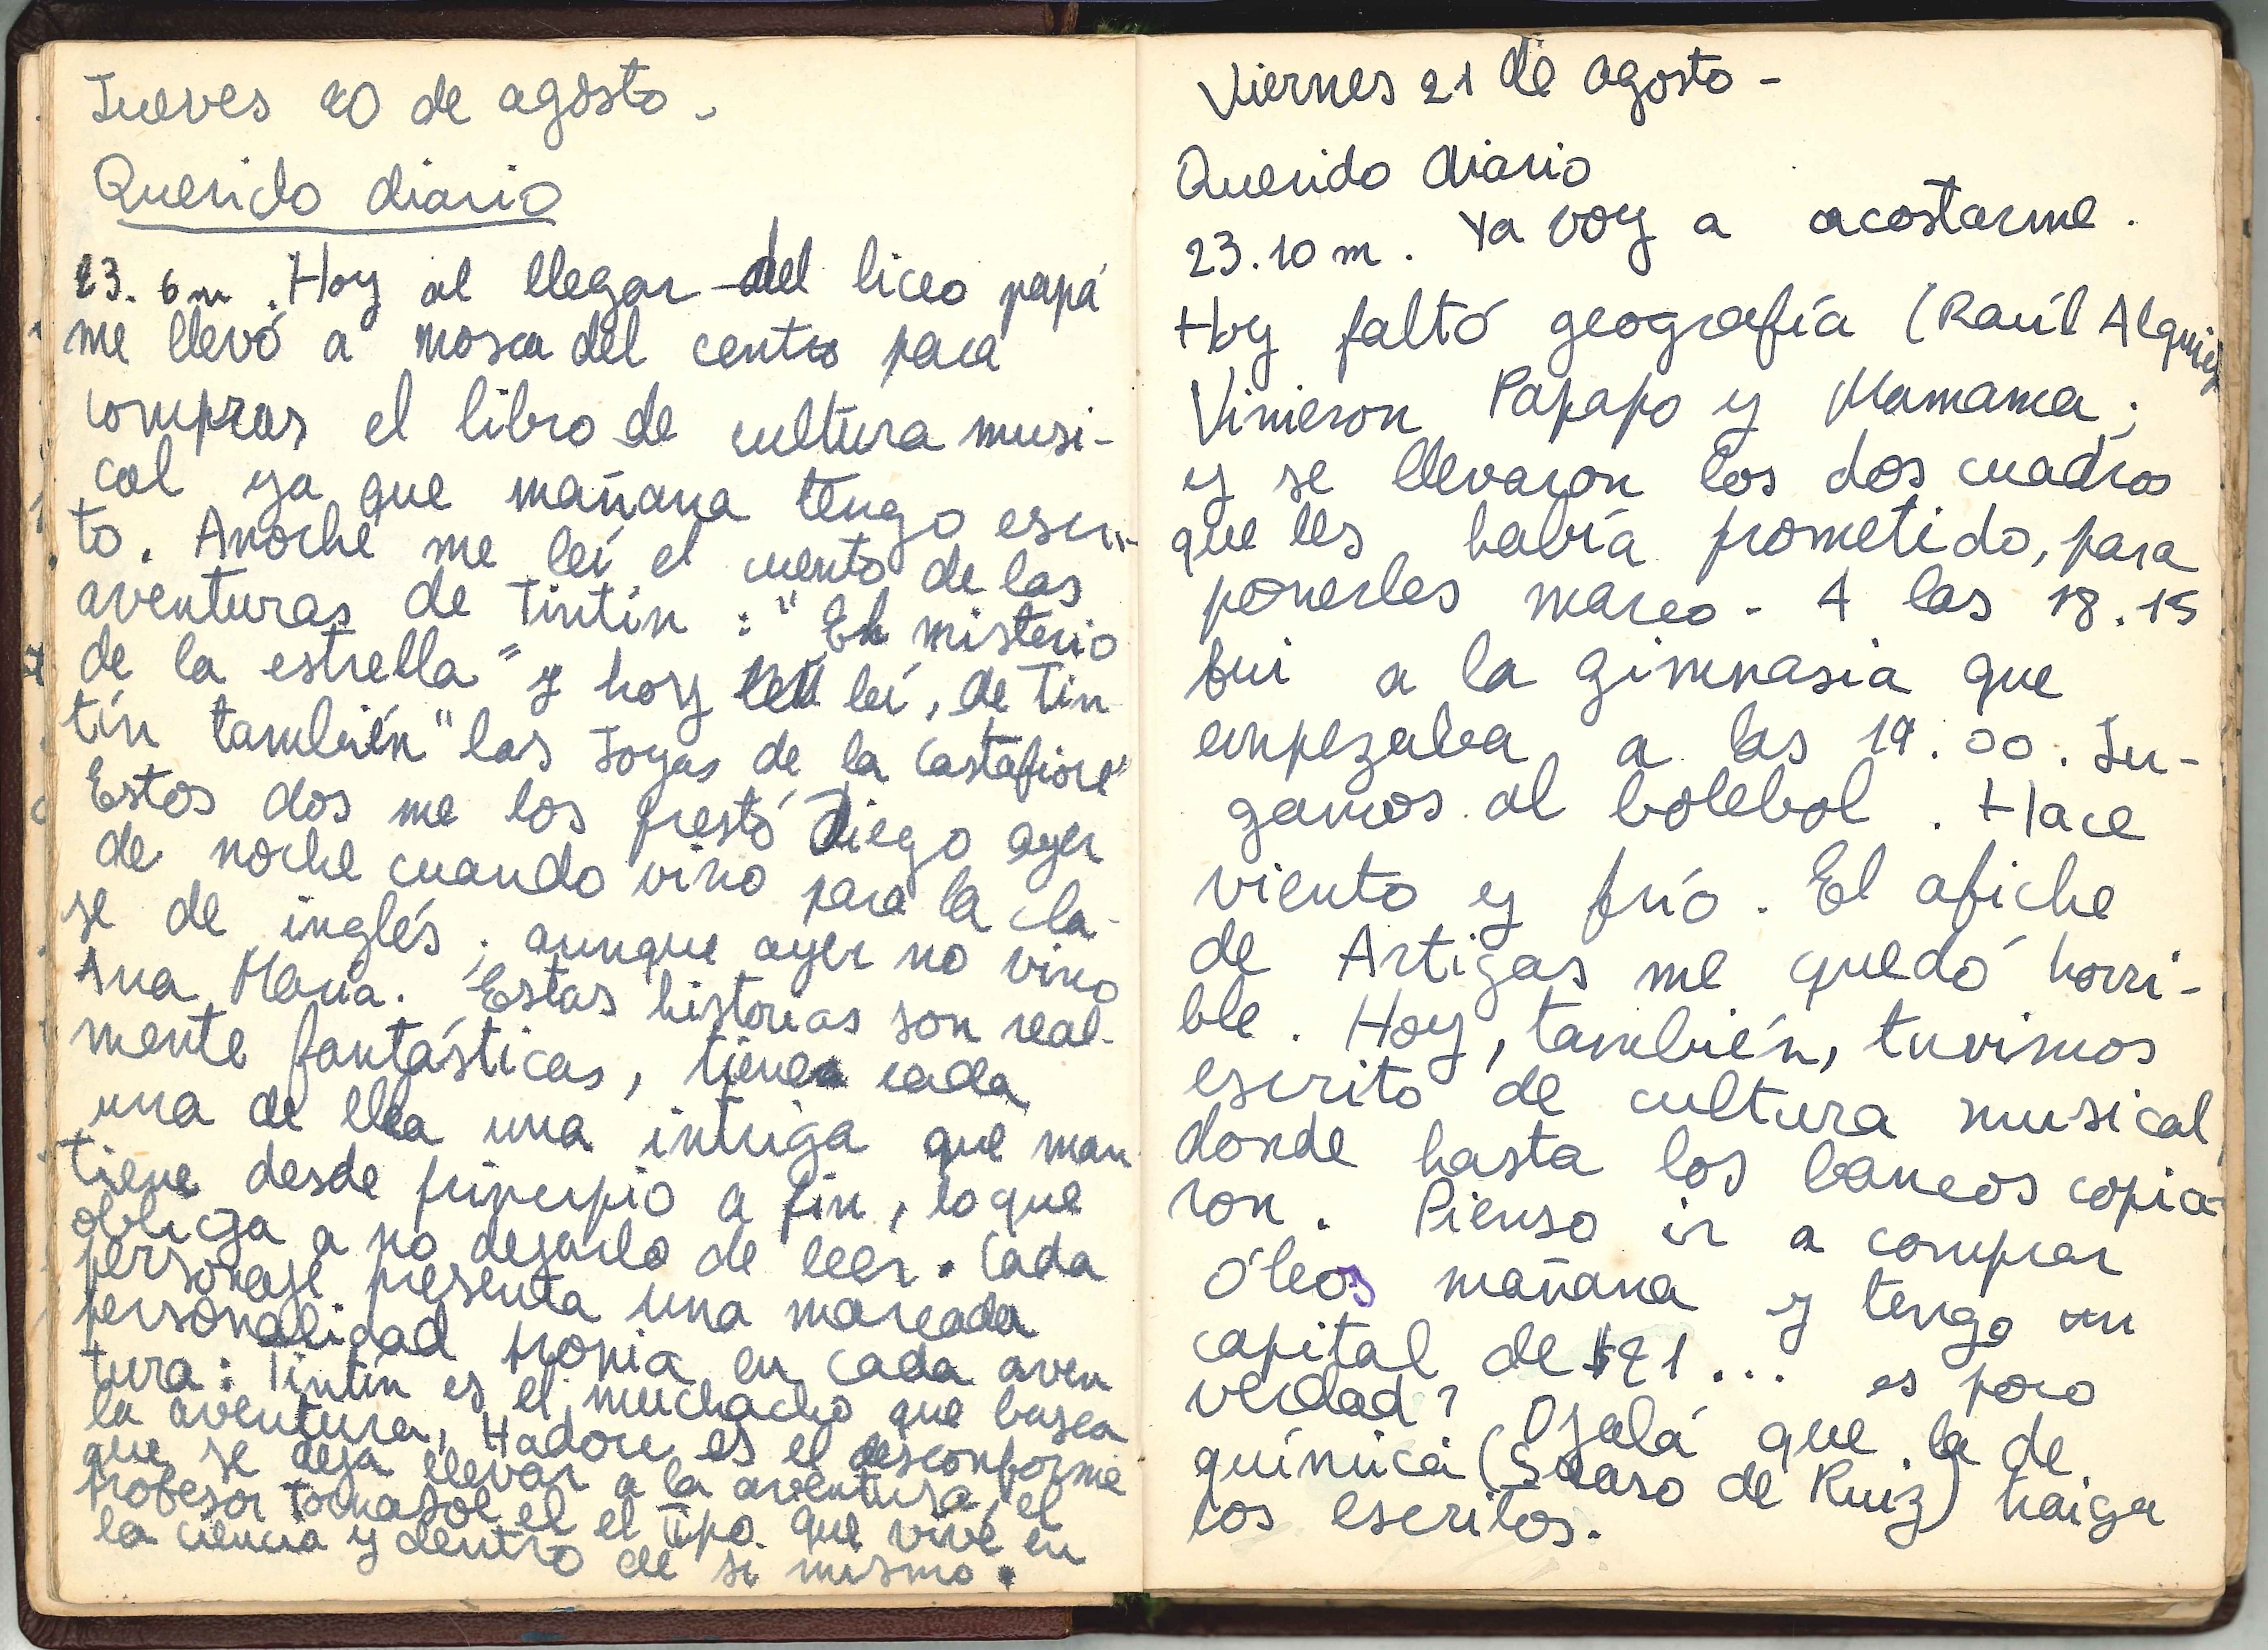 Jueves 20 de agosto.
Querido diario
23. 6m. Hoy al llegar del liceo papá
me llevó a Mosca del centro para
comprar el libro de cultura musi-
cal ya que mañana tengo escri-
to. Anoche me leí el cuento de las
aventuras de Tintín : "El misterio
de la estrella" y hoy leí, de Tin
tín también "las Joyas de la Castafiore"
Estos dos me los prestó Diego ayer
de noche cuando vino para la cla-
se de inglés ; aunque ayer no vino
Ana María. Estas historias son real-
mente fantásticas, tiene cada
una de ella una intriga que man
tiene desde principio a fin, lo que
obliga a no dejarlo de leer. Cada
personaje presenta una marcada
personalidad propia en cada aven
tura: Tintín es el muchacho que busca
la aventura, Hadoc es el desconforme
que se deja llevar a la aventura, el
profesor Tornasol el el tipo que vive en
la ciencia y dentro de si mismo.
Viernes 21 de agosto -
Querido diario
23.10 m. Ya voy a acostarme.
Hoy faltó geografía (Raúl
Vinieron Papapo y Mamama ;
y se llevaron los dos cuadros
que les había prometido, para
ponerles marco - A las 18.15
fui a la gimnasia que
empezaba a las 19.00. Ju-
gamos al bolebol. Hace
viento y frío. El afiche
de Artigas me quedó horri-
ble. Hoy, también, tuvimos
escrito de cultura musical,
donde hasta los bancos copia-
ron. Pienso ir a comprar
óleos mañana y tengo un
capital de $21... es poco
verdad? Ojalá que la de
química ( de Ruiz) traiga
los escritos.